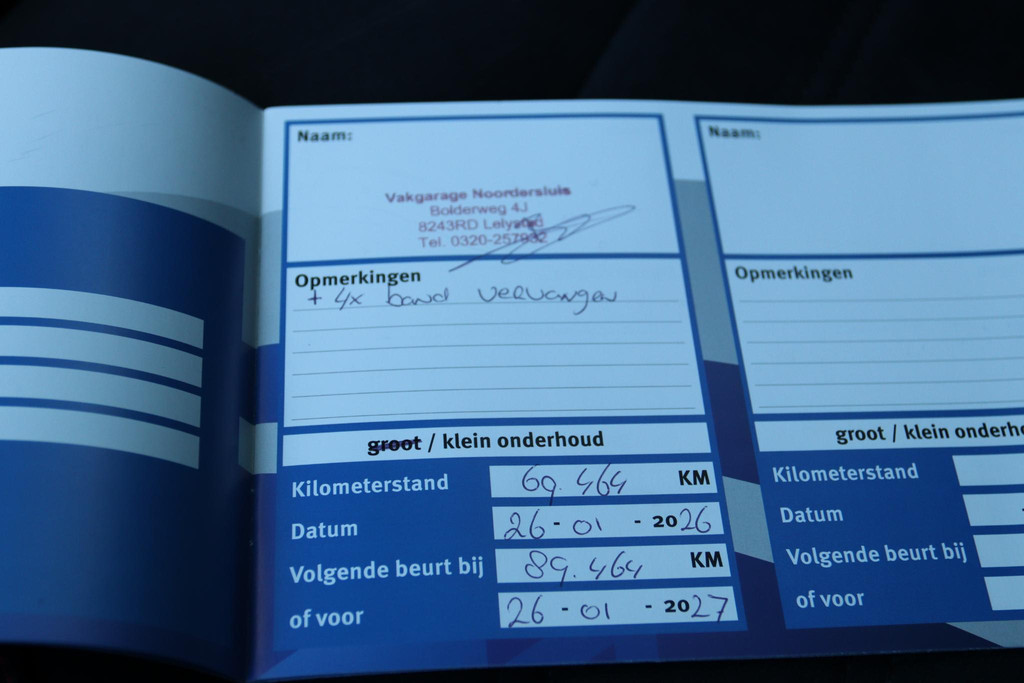 Naam:
Vakgarage Noordersluis
Bolderweg 4J
8243RD Lelystad
Tel. 0320-257932
Opmerkingen
+ 4x band vervangen
groot / klein onderhoud
Kilometerstand 69.464 KM
Datum 26 - 01 - 2026
Volgende beurt bij 89.464 KM
of voor 26 - 01 - 2027
Naam:
Opmerkingen
groot / klein onderho
Kilometerstand
Datum
Volgende beurt bij
of voor